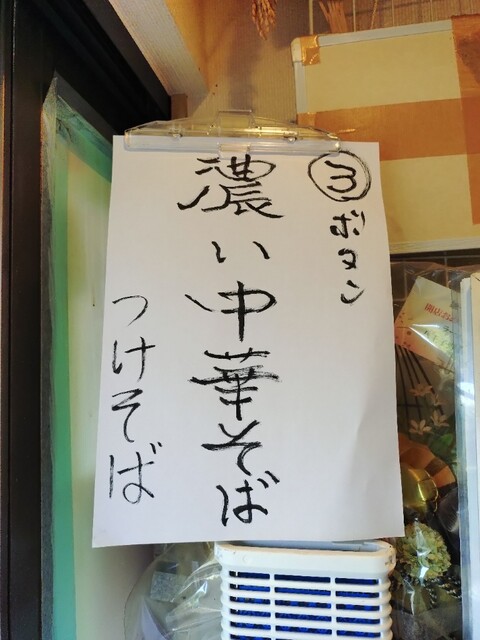 ③ボタン
濃い中華そば
つけそば
開店